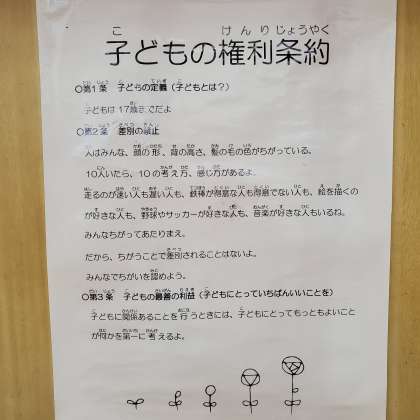 子どもの権利条約
○第1条　子どもの定義（子どもとは？）
子どもは 17歳までだよ
○第2条　差別の禁止
人はみんな、顔の形、背の高さ、髪の毛の色がちがっている。
10人いたら、10の考え方、感じ方があるよ。
走るのが速い人も遅い人も、鉄棒が得意な人も得意でない人も、絵を描くの
が好きな人も、野球やサッカーが好きな人も、音楽が好きな人もいるね。
みんなちがってあたりまえ。
だから、ちがうことで差別されることはないよ。
みんなでちがいを認めよう。
○第3条　子どもの最善の利益（子どもにとっていちばんいいことを）
子どもに関係あることを行うときには、子どもにとってもっともよいこと
が何かを第一に考えるよ。